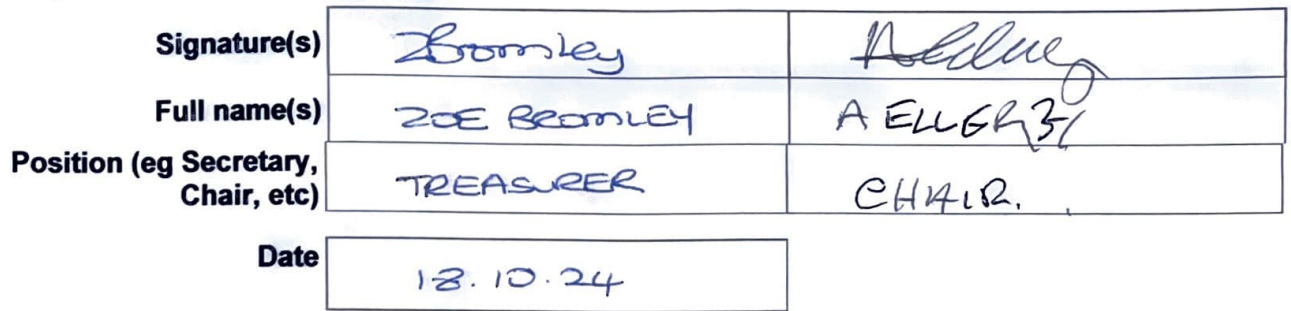 Signature(s) ZBromley
Full name(s) ZOE BROMLEY A
Position (eg Secretary,
Chair, etc) TREASURER CHAIR.
Date 18.10.24